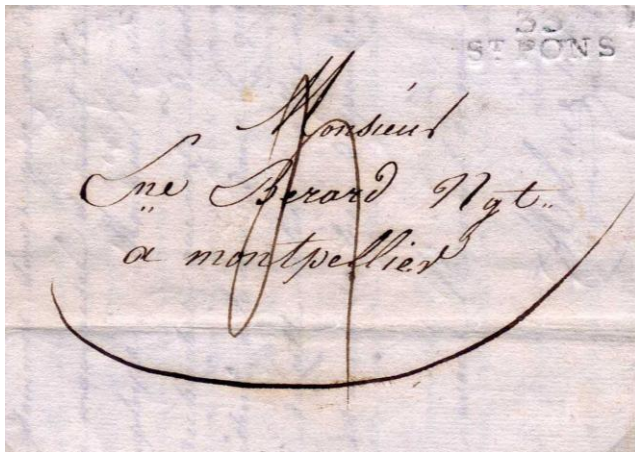 33
ST PONS
Monsieur
Berard Ngt
a montpellier